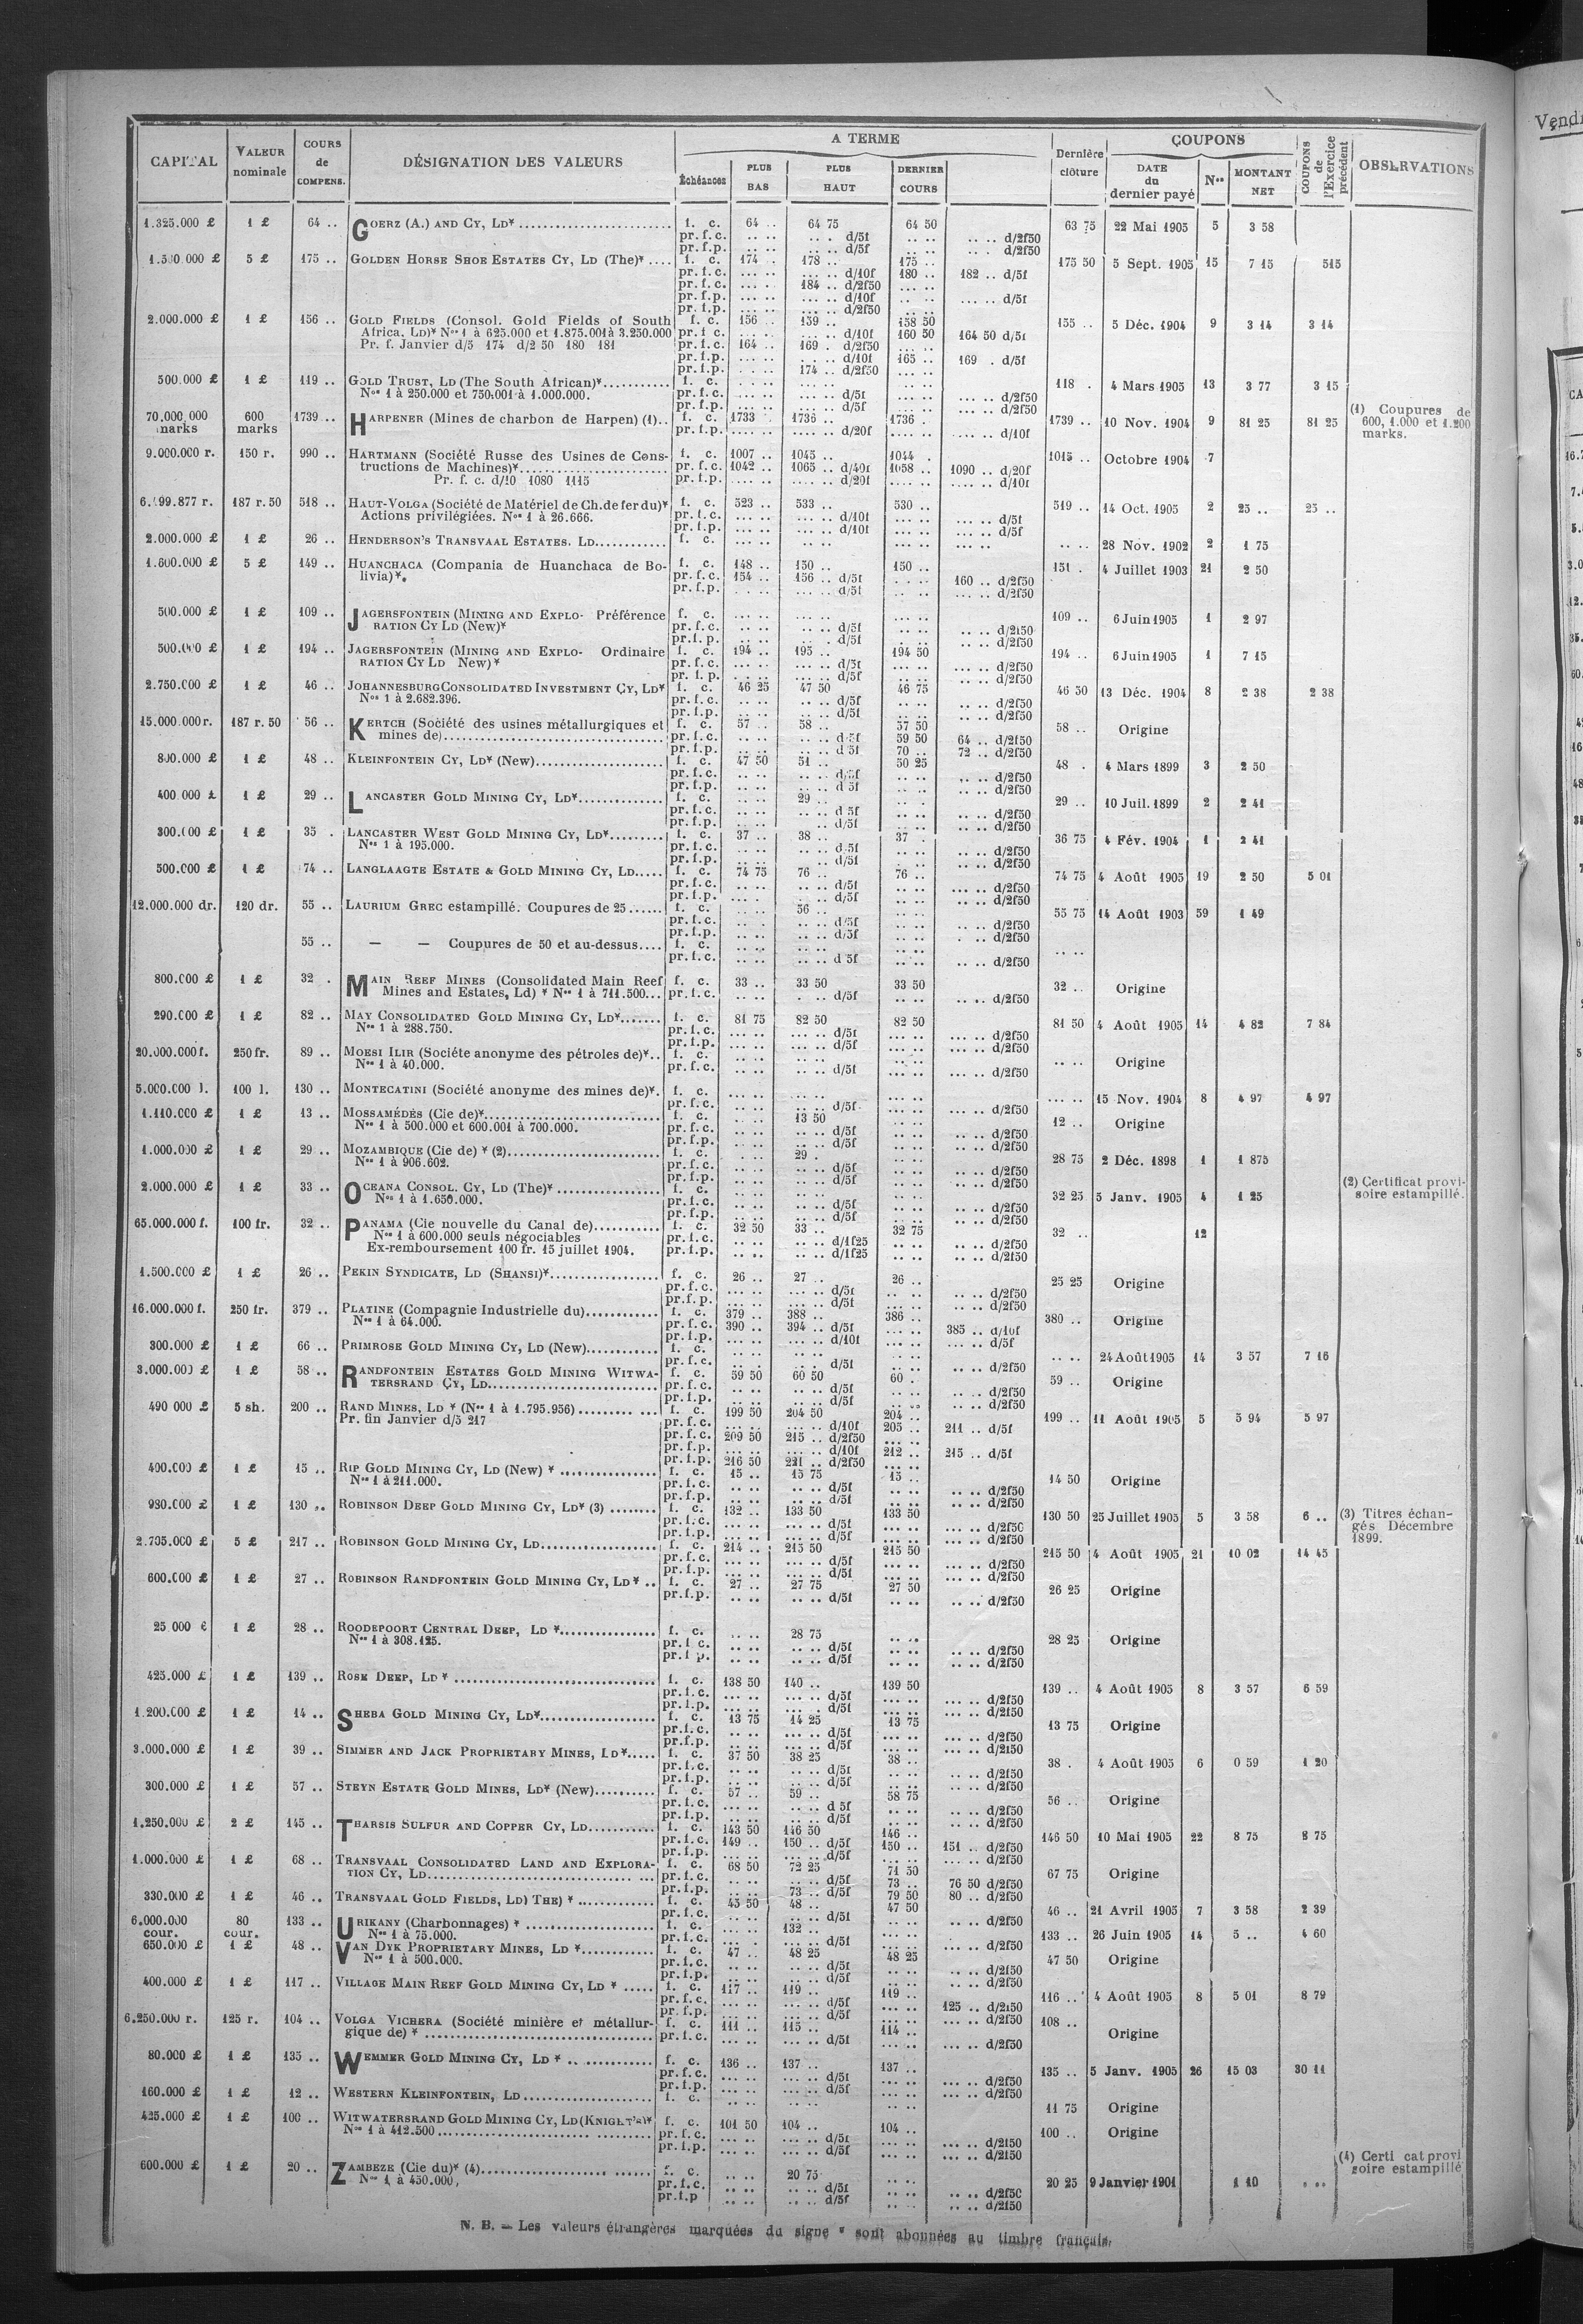 CAPITAL | VALEUR nominale | COURS de COMPENS. | DÉSIGNATION DES VALEURS | A TERME | Dernière clôture | COUPONS | COUPONS de l'Exercice précédent | OBSERVATIONS
Échéances | PLUS BAS | PLUS HAUT | DERNIER COURS | DATE du dernier payé | Nos | MONTANT NET
1.325.000 £ 1 £ 64 .. GOERZ (A.) AND CY, LD* f. c. 64 .. 64 75 64 50 63 75 22 Mai 1905 5 3 58
pr. f. c. d/5f d/2f50
pr. f. p. d/5f d/2f50
5 £ 175 .. GOLDEN HORSE SHOE ESTATES CY, LD (The)* f. c. 174 .. 178 .. 175 .. 175 50 5 Sept. 1905 15 7 15 515
pr. f. c. d/10f 180 .. 182 .. d/5f
pr. f. c. 184 .. d/2f50
pr. f. p. d/10f d/5f
pr. f. p. d/2f50
2.000.000 £ 1 £ 156 .. GOLD FIELDS (Consol. Gold Fields of South f. c. 156 .. 159 .. 158 50 155 .. 5 Déc. 1904 9 3 14 3 14
Africa, LD)* Nos 1 à 625.000 et 1.875.001 à 3.250.000 pr. f. c. d/10f 160 50 164 50 d/5f
Pr. f. Janvier d/5 174 d/2 50 180 181 pr. f. c. 164 .. 169 . d/2f50
pr. f. p. d/10f 165 .. 169 . d/5f
pr. f. p. 174 .. d/2f50
500.000 £ 1 £ 119 .. GOLD TRUST, LD (The South African)* f. c. 118 . 4 Mars 1905 13 3 77 3 15
Nos 1 à 250.000 et 750.001 à 1.000.000. pr. f. c. d/5f d/2f50
pr. f. p. d/5f d/2f50
70.000.000 marks 600 marks 1739 .. HARPENER (Mines de charbon de Harpen) (1).. f. c. 1733 . 1736 .. 1736 . 1739 .. 10 Nov. 1904 9 81 25 81 25 (1) Coupures de 600, 1.000 et 1.200 marks.
pr. f. p. d/20f d/10f
9.000.000 r. 150 r. 990 .. HARTMANN (Société Russe des Usines de Cons- f. c. 1007 .. 1045 .. 1044 . 1015 .. Octobre 1904 7
tructions de Machines)* pr. f. c. 1042 .. 1065 .. d/40f 1058 .. 1090 .. d/20f
Pr. f. c. d/10 1080 1115 pr. f. p. d/20f d/10f
187 r. 50 518 .. HAUT-VOLGA (Société de Matériel de Ch. de fer du)* f. c. 523 .. 533 .. 530 .. 519 .. 14 Oct. 1905 2 25 .. 25 ..
Actions privilégiées. Nos 1 à 26.666. pr. f. c. d/10f d/5f
pr. f. p. d/10f d/5f
2.000.000 £ 1 £ 26 .. HENDERSON'S TRANSVAAL ESTATES. LD f. c. 28 Nov. 1902 2 1 75
1.600.000 £ 5 £ 149 .. HUANCHACA (Compania de Huanchaca de Bo- f. c. 148 .. 150 .. 150 .. 151 . 4 Juillet 1903 21 2 50
livia)*. pr. f. c. 154 .. 156 .. d/5f 160 .. d/2f50
pr. f. p. d/5f d/2f50
500.000 £ 1 £ 109 .. JAGERSFONTEIN (MINING AND EXPLO- Préférence f. c. 109 .. 6 Juin 1905 1 2 97
RATION CY LD (New)* pr. f. c. d/5f d/2f50
pr. f. p. d/5f d/2f50
500.000 £ 1 £ 194 .. JAGERSFONTEIN (MINING AND EXPLO- Ordinaire f. c. 194 .. 195 .. 194 50 194 .. 6 Juin 1905 1 7 15
RATION CY LD New)* pr. f. c. d/5f d/2f50
pr. f. p. d/5f d/2f50
2.750.000 £ 1 £ 46 .. JOHANNESBURG CONSOLIDATED INVESTMENT CY, LD* f. c. 46 25 47 50 46 75 46 50 13 Déc. 1904 8 2 38 2 38
Nos 1 à 2.682.396. pr. f. c. d/5f d/2f50
pr. f. p. d/5f d/2f50
15.000.000 r. 187 r. 50 56 .. KERTCH (Société des usines métallurgiques et f. c. 57 .. 58 .. 57 50 58 .. Origine
mines de) pr. f. c. d 5f 59 50 64 .. d/2f50
pr. f. p. d 5f 70 .. 72 .. d/2f50
800.000 £ 1 £ 48 .. KLEINFONTEIN CY, LD* (New) f. c. 47 50 51 .. 50 25 48 . 4 Mars 1899 3 2 50
pr. f. c. d/5f d/2f50
pr. f. p. d 5f d/2f50
400 000 £ 1 £ 29 .. LANCASTER GOLD MINING CY, LD* f. c. 29 .. 29 .. 10 Juil. 1899 2 2 41
pr. f. c. d 5f d/2f50
pr. f. p. d/5f d/2f50
300.000 £ 1 £ 35 . LANCASTER WEST GOLD MINING CY, LD* f. c. 37 .. 38 .. 37 . 36 75 4 Fév. 1904 1 2 41
Nos 1 à 195.000. pr. f. c. d 5f d/2f50
pr. f. p. d/5f d/2f50
500.000 £ 1 £ 74 .. LANGLAAGTE ESTATE & GOLD MINING CY, LD f. c. 74 75 76 .. 76 .. 74 75 4 Août 1905 19 2 50 5 01
pr. f. c. d/5f d/2f50
pr. f. p. d/5f d/2f50
12.000.000 dr. 120 dr. 55 .. LAURIUM GREC estampillé. Coupures de 25 f. c. 56 .. 55 75 14 Août 1903 59 1 49
pr. f. c. d/5f d/2f50
pr. f. p. d/5f d/2f50
55 .. — — Coupures de 50 et au-dessus f. c.
pr. f. c. d 5f d/2f50
800.000 £ 1 £ 32 . MAIN REEF MINES (Consolidated Main Reef f. c. 33 .. 33 50 33 50 32 .. Origine
Mines and Estates, Ld) * Nos 1 à 711.500... pr. f. c. d/5f d/2f50
290.000 £ 1 £ 82 .. MAY CONSOLIDATED GOLD MINING CY, LD* f. c. 81 75 82 50 82 50 81 50 4 Août 1905 14 4 82 7 84
Nos 1 à 288.750. pr. f. c. d/5f d/2f50
pr. f. p. d/5f d/2f50
20.000.000 f. 250 fr. 89 .. MOESI ILIR (Sociéte anonyme des pétroles de)*.. f. c. Origine
Nos 1 à 40.000. pr. f. c. d/5f d/2f50
5.000.000 l. 100 l. 130 .. MONTECATINI (Société anonyme des mines de)*. f. c. 15 Nov. 1904 8 4 97 4 97
pr. f. c. d/5f d/2f50
1.110.000 £ 1 £ 13 .. MOSSAMÉDÈS (Cie de)* f. c. 13 50 12 .. Origine
Nos 1 à 500.000 et 600.001 à 700.000. pr. f. c. d/5f d/2f50
pr. f. p. d/5f d/2f50
1.000.000 £ 1 £ 29 .. MOZAMBIQUE (Cie de) * (2) f. c. 29 . 28 75 2 Déc. 1898 1 1 875
Nos 1 à 906.602. pr. f. c. d/5f d/2f50
pr. f. p. d/5f d/2f50
2.000.000 £ 1 £ 33 .. OCEANA CONSOL. CY, LD (The)* f. c. 32 25 5 Janv. 1905 4 1 25 (2) Certificat provi-
Nos 1 à 1.650.000. pr. f. c. d/5f d/2f50 soire estampillé.
pr. f. p. d/5f d/2f50
65.000.000 f. 100 fr. 32 .. PANAMA (Cie nouvelle du Canal de) f. c. 32 50 33 .. 32 75 32 .. 12
Nos 1 à 600.000 seuls négociables pr. f. c. d/1f25 d/2f50
Ex-remboursement 100 fr. 15 juillet 1904. pr. f. p. d/1f25 d/2f50
1.500.000 £ 1 £ 26 .. PEKIN SYNDICATE, LD (SHANSI)* f. c. 26 .. 27 .. 26 .. 25 25 Origine
pr. f. c. d/5f d/2f50
pr. f. p. d/5f d/2f50
16.000.000 f. 250 fr. 379 .. PLATINE (Compagnie Industrielle du) f. c. 379 .. 388 .. 386 .. 380 .. Origine
Nos 1 à 64.000. pr. f. c. 390 .. 394 .. d/5f 385 .. d/10f
pr. f. p. d/10f d/5f
300.000 £ 1 £ 66 .. PRIMROSE GOLD MINING CY, LD (New) f. c. 24 Août 1905 14 3 57 7 16
pr. f. c. d/5f d/2f50
3.000.000 £ 1 £ 58 .. RANDFONTEIN ESTATES GOLD MINING WITWA- f. c. 59 50 60 50 60 . 59 .. Origine
TERSRAND CY, LD pr. f. c. d/5f d/2f50
pr. f. p. d/5f d/2f50
490 000 £ 5 sh. 200 .. RAND MINES, LD * (Nos 1 à 1.795.956) f. c. 199 50 204 50 204 .. 199 .. 11 Août 1905 5 5 94 5 97
Pr. fin Janvier d/5 217 pr. f. c. d/10f 205 .. 211 .. d/5f
pr. f. c. 209 50 215 .. d/2f50
pr. f. p. d/10f 212 .. 215 .. d/5f
pr. f. p. 216 50 221 .. d/2f50
400.000 £ 1 £ 15 .. RIP GOLD MINING CY, LD (New) * f. c. 15 .. 15 75 15 .. 14 50 Origine
Nos 1 à 211.000. pr. f. c. d/5f d/2f50
pr. f. p. d/5f d/2f50
980.000 £ 1 £ 130 .. ROBINSON DEEP GOLD MINING CY, LD* (3) f. c. 132 .. 133 50 133 50 130 50 25 Juillet 1905 5 3 58 6 .. (3) Titres échan-
pr. f. c. d/5f d/2f50 gés Décembre
pr. f. p. d/5f d/2f50 1899.
5 £ 217 .. ROBINSON GOLD MINING CY, LD f. c. 214 .. 215 50 215 50 215 50 4 Août 1905 21 10 02 14 45
pr. f. c. d/5f d/2f50
pr. f. p. d/5f d/2f50
600.000 £ 1 £ 27 .. ROBINSON RANDFONTEIN GOLD MINING CY, LD * .. f. c. 27 .. 27 75 27 50 26 25 Origine
pr. f. p. d/5f d/2f50
25 000 £ 1 £ 28 .. ROODEPOORT CENTRAL DEEP, LD * f. c. 28 75 28 25 Origine
Nos 1 à 308.125. pr. f. c. d/5f d/2f50
pr. f. p. d/5f d/2f50
425.000 £ 1 £ 139 .. ROSE DEEP, LD * f. c. 138 50 140 .. 139 50 139 .. 4 Août 1905 8 3 57 6 59
pr. f. c. d/5f d/2f50
pr. f. p. d/5f d/2f50
1.200.000 £ 1 £ 14 .. SHEBA GOLD MINING CY, LD* f. c. 13 75 14 25 13 75 13 75 Origine
pr. f. c. d/5f d/2f50
pr. f. p. d/5f d/2f50
3.000.000 £ 1 £ 39 .. SIMMER AND JACK PROPRIETARY MINES, LD* f. c. 37 50 38 25 38 .. 38 . 4 Août 1905 6 0 59 1 20
pr. f. c. d/5f d/2f50
pr. f. p. d/5f d/2f50
300.000 £ 1 £ 57 .. STEYN ESTATE GOLD MINES, LD* (New) f. c. 57 .. 59 .. 58 75 56 .. Origine
pr. f. c. d 5f d/2f50
pr. f. p. d/5f d/2f50
1.250.000 £ 2 £ 145 .. THARSIS SULFUR AND COPPER CY, LD f. c. 143 50 146 50 146 .. 146 50 10 Mai 1905 22 8 75 8 75
pr. f. c. 149 .. 150 .. d/5f 150 .. 151 .. d/2f50
pr. f. p. d/5f d/2f50
1.000.000 £ 1 £ 68 .. TRANSVAAL CONSOLIDATED LAND AND EXPLORA- f. c. 68 50 72 25 71 50 67 75 Origine
TION CY, LD pr. f. c. d/5f 73 .. 76 50 d/2f50
pr. f. p. 73 .. d/5f 79 50 80 .. d/2f50
330.000 £ 1 £ 46 .. TRANSVAAL GOLD FIELDS, LD) THE) * f. c. 45 50 48 .. 47 50 46 .. 21 Avril 1905 7 3 58 2 39
pr. f. c. d/5f d/2f50
6.000.000 cour. 80 cour. 133 .. URIKANY (Charbonnages) * f. c. 132 .. 133 .. 26 Juin 1905 14 5 .. 4 60
Nos 1 à 75.000. pr. f. c. d/5f d/2f50
650.000 £ 1 £ 48 .. VAN DYK PROPRIETARY MINES, LD * f. c. 47 .. 48 25 48 25 47 50 Origine
Nos 1 à 500.000. pr. f. c. d/5f d/2f50
pr. f. p. d/5f d/2f50
400.000 £ 1 £ 117 .. VILLAGE MAIN REEF GOLD MINING CY, LD * f. c. 117 .. 119 .. 119 .. 116 .. 4 Août 1905 8 5 01 8 79
pr. f. c. d/5f 125 .. d/2f50
pr. f. p. d/5f d/2f50
6.250.000 r. 125 r. 104 .. VOLGA VICHERA (Société minière et métallur- f. c. 111 .. 115 .. 114 .. 108 .. Origine
gique de) * pr. f. c. d/5f d/2f50
80.000 £ 1 £ 135 .. WEMMER GOLD MINING CY, LD * f. c. 136 .. 137 .. 137 .. 135 .. 5 Janv. 1905 26 15 03 30 11
pr. f. c. d/5f d/2f50
pr. f. p. d/5f d/2f50
160.000 £ 1 £ 12 .. WESTERN KLEINFONTEIN, LD f. c. 11 75 Origine
425.000 £ 1 £ 100 .. WITWATERSRAND GOLD MINING CY, LD (KNIGHT'S)* f. c. 101 50 104 .. 104 .. 100 .. Origine
Nos 1 à 412.500 pr. f. c. d/5f d/2f50
pr. f. p. d/5f d/2f50
600.000 £ 1 £ 20 .. ZAMBEZE (Cie du)* (4) f. c. 20 75 20 25 9 Janvier 1901 1 10 (4) Certi cat provi
Nos 1 à 450.000, pr. f. c. d/5f d/2f50 soire estampillé
pr. f. p d/5f d/2f50
N. B. — Les valeurs étrangères marquées du signe * sont abonnées au timbre français.
Vendr